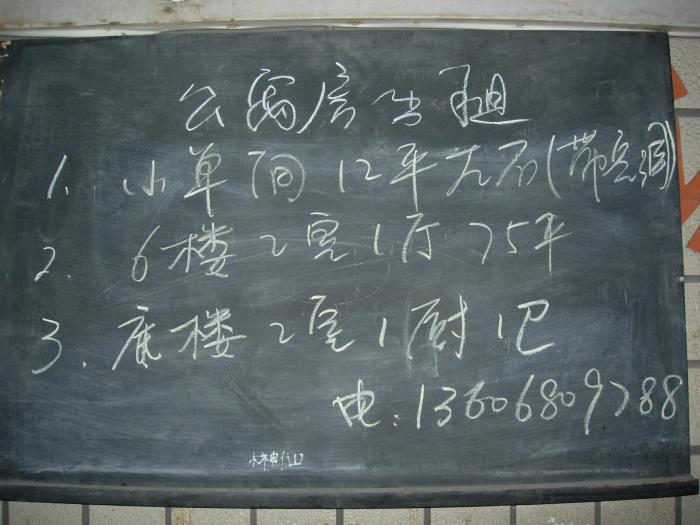 公寓房出租
1. 小单间 12平左右(带空调)
2. 6楼 2室1厅 75平
3. 底楼 2室1厨1卫
电:13606809788
林神仙